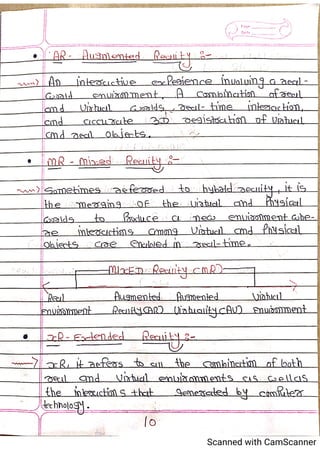 • AR - Augmented Reality :-
An interactive experience involving a real-
world environment. A combination of real
and virtual worlds, real-time interaction,
and accurate 3D registration of virtual
and real objects.
• MR - Mixed Reality :-
Sometimes referred to hybrid reality, it is
the merging of the virtual and physical
worlds to produce a new environment whe-
re interactions among virtual and physical
objects are enabled in real-time.
MIXED Reality (MR)
Real Augmented Augmented Virtual
Environment Reality (AR) Virtuality (AV) Environment
• XR - Extended Reality :-
XR, it refers to all the combination of both
real and virtual environments as well as
the interactions that generated by computer
technology.
10
Scanned with CamScanner